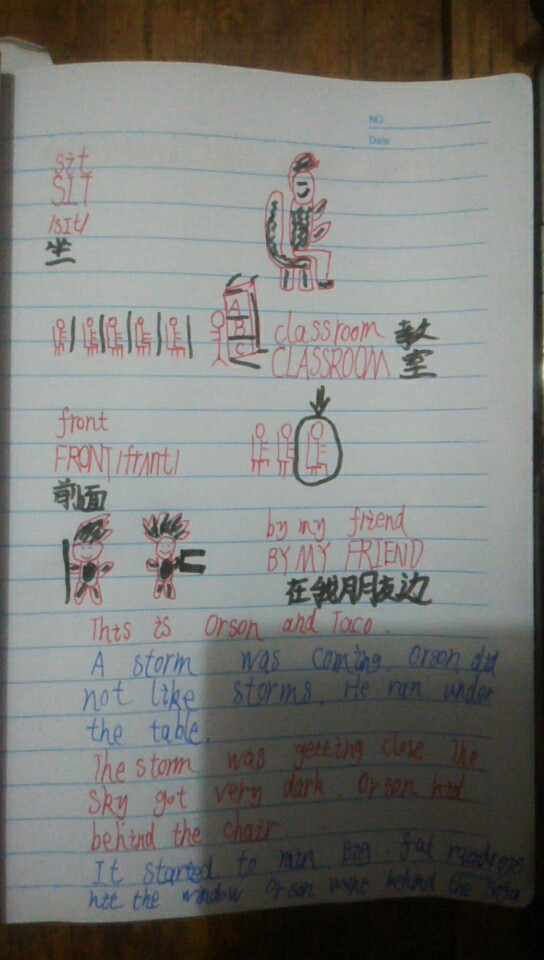 NO
Date
sit
SIT
/sIt/
坐
A
B
C
classroom 教
CLASSROOM 室
front
FRONT /frʌnt/
前面
by my friend
BY MY FRIEND
在我朋友边
This is Orson and Taco.
A storm was coming. Orson did
not like storms. He ran under
the table.
The storm was getting close The
sky got very dark. Orson hid
behind the chair
It started to rain. Big, fat raindrops
hit the window Orson went behind the sofa